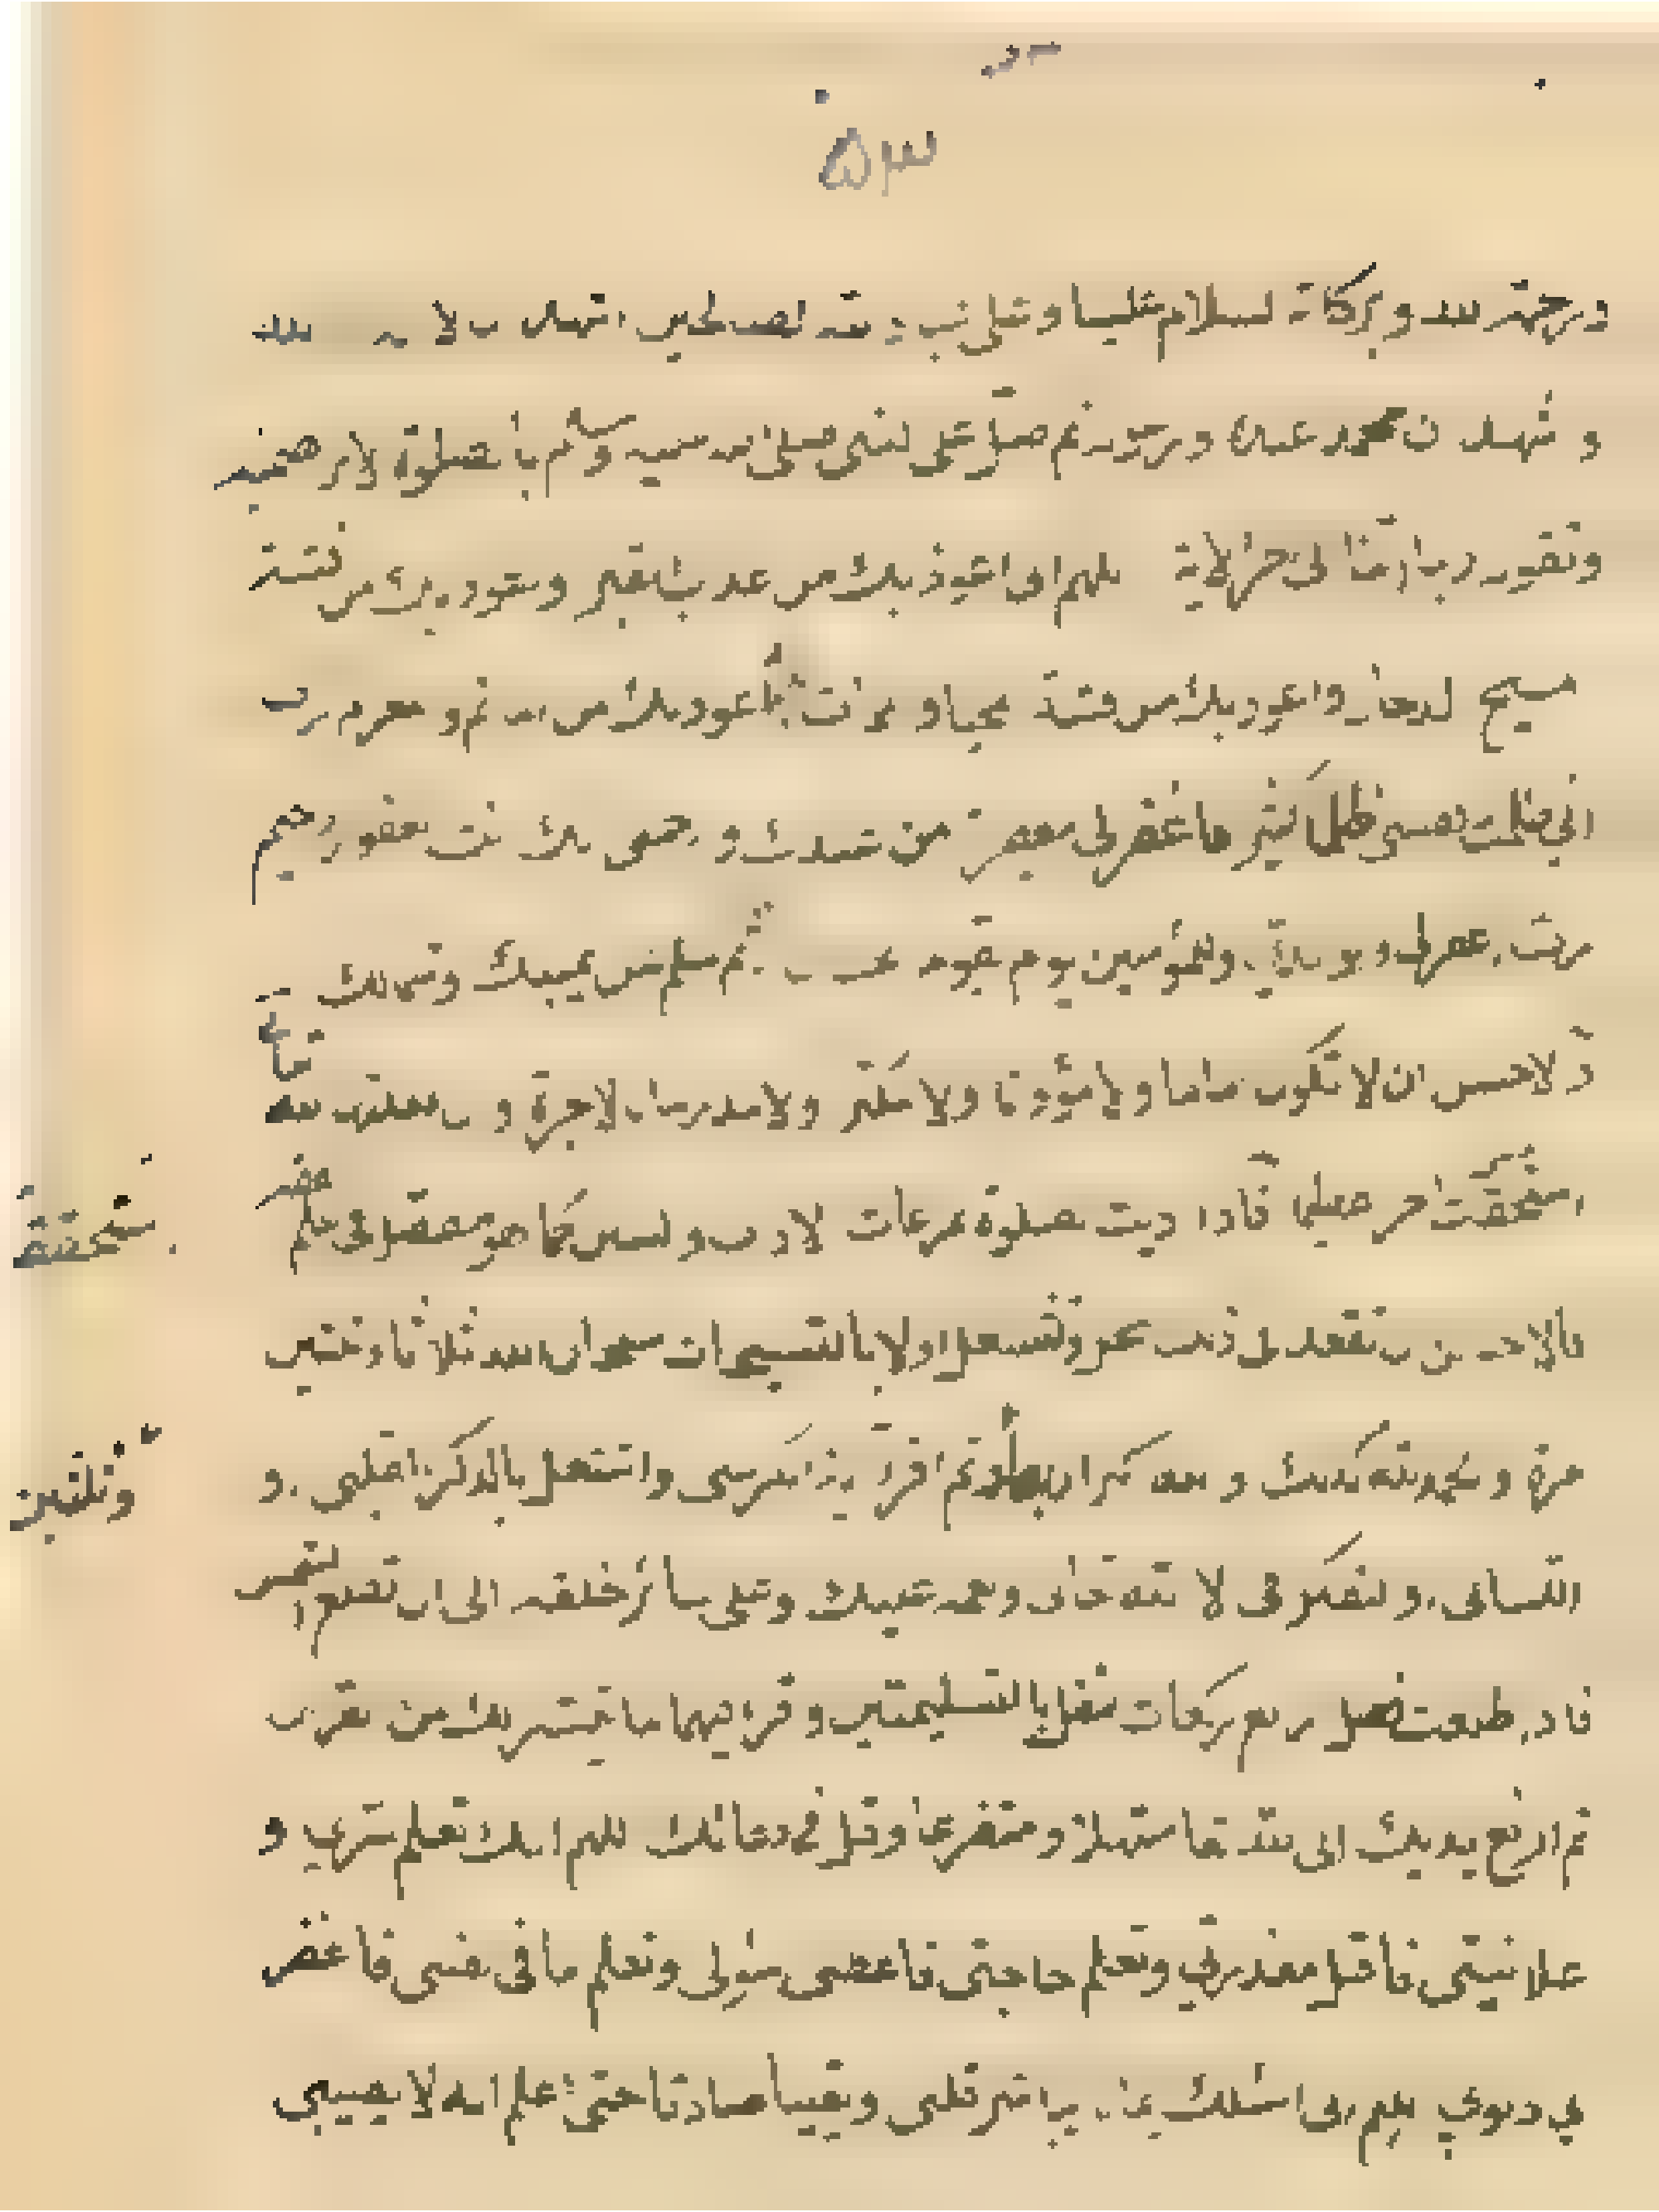 ۵۳
ورحمة الله وبركاته السلام علينا وعلى عباد الله الصالحين اشهد ان لا اله الا الله
واشهد ان محمدا عبده ورسوله ثم صل على النبي صلى الله عليه وسلم بالصلوة الابراهيمية
وتقول ربنا اتنا الى اخر الاية اللهم انى اعوذ بك من عذاب القبر واعوذ بك من فتنة
المسيح الدجال واعوذ بك من فتنة المحيا والممات واعوذ بك من المأثم والمغرم رب
انى ظلمت نفسى ظلما كثيرا فاغفر لى مغفرة من عندك وارحمنى انك انت الغفور الرحيم
رب اغفر لى ولوالدي وللمؤمنين يوم يقوم الحساب ثم سلم عن يمينك وشمالك
والاحسن ان لا تكون اماما ولا مؤذنا ولا ولا مدرسا بالاجرة و الله تعالى
فاذا اديت الصلوة بمراعات الاداب والسنن كما هو مفصل فى علم الفقه
فالاحسن ان تقعد الى وتشتغل اولا بالتسبيحات سبحان الله ثلاثا وثلثين
مرة والحمد لله كذلك والله اكبر ثم اقرأ اية الكرسى واشتغل بالذكر القلبى او
اللسانى او التفكر فى الاء الله تعالى ونعمه عليك وعلى سائر خلقه الى ان تطلع الشمس
فاذا طلعت فصل اربع ركعات نفل بالتسليمتين واقرء فيهما ما تيسر لك من القران
ثم ارفع يديك الى الله تعا مبتهلا ومتضرعا وقل فى دعائك اللهم انك تعلم سرى و
علانيتى فاقبل معذرتى وتعلم حاجتى فاعطنى سؤلى وتعلم ما فى نفسى فاغفر
لي ذنوبي اللهم انى اسئلك ايمانا يباشر قلبى ويقينا صادقا حتى اعلم انه لا يصيبنى
وثلثين